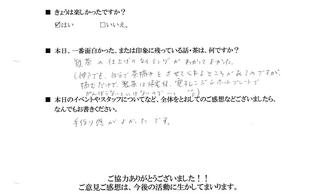 ■ きょうは楽しかったですか?
☑はい □いいえ。
■ 本日、一番面白かった、または印象に残っている話・茶は、何ですか?
製茶の仕上げのタイミングがわかってよかった。
(埼玉でも、自分で茶摘みをさせてくれるところがあるのですが、
摘むだけで、製茶は帰宅後、電子レンジとホットプレートで
■ 本日のイベントやスタッフについてなど、全体をとおしてのご感想などございましたら、
なんでもお書きください。
手作り感がよかったです。
ご協力ありがとうございました!!
ご意見ご感想は、今後の活動に生かしてまいります。